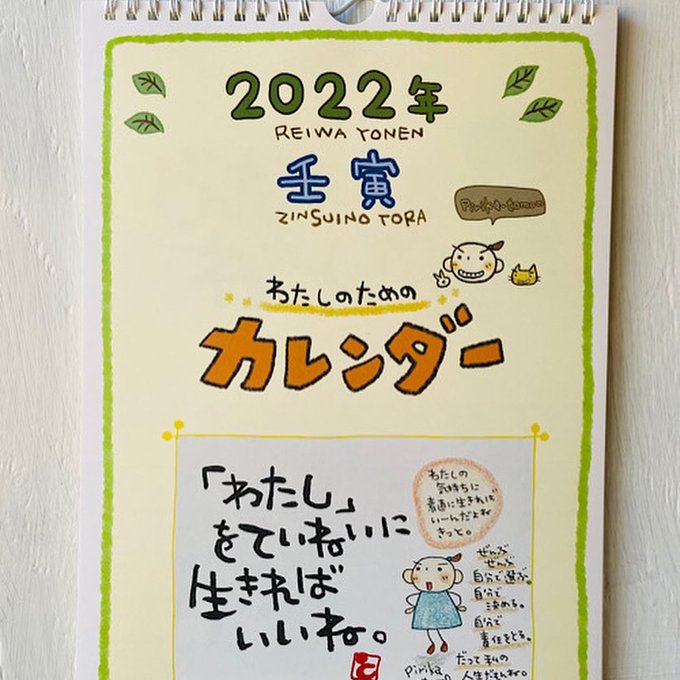 2022年
REIWA YONEN
壬寅
ZINSUINO TORA
わたしのための
カレンダー
「わたし」
をていねいに
生きれば
いいね。
わたしの
気持ちに
素直に生きれば
いーんだよね
きっと。
ぜんぶ
ぜんぶ
自分で選ぶ。
自分で
決める。
自分で
責任をとる。
だって私の
人生だもんね。
Pirika